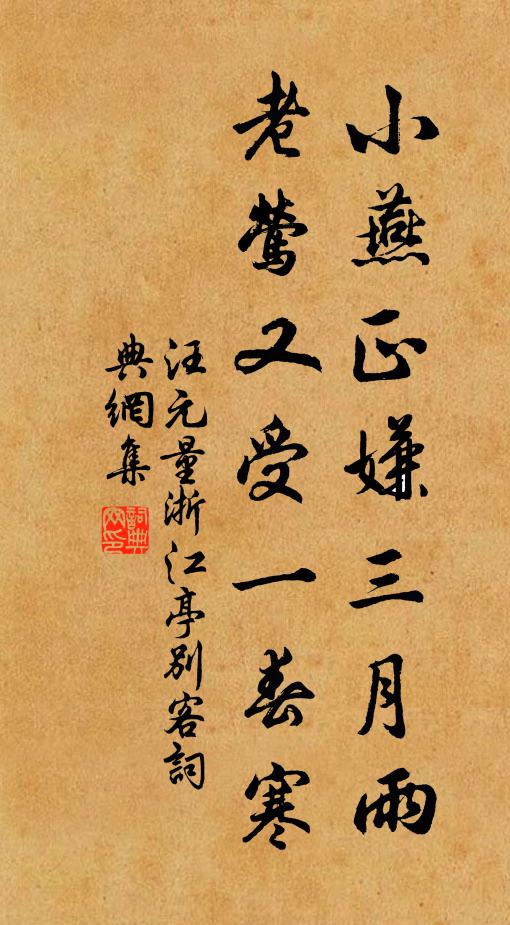 小燕正嫌三月雨
老鶯又受一春寒
汪元量浙江亭別客詞
典網集
詞典網印